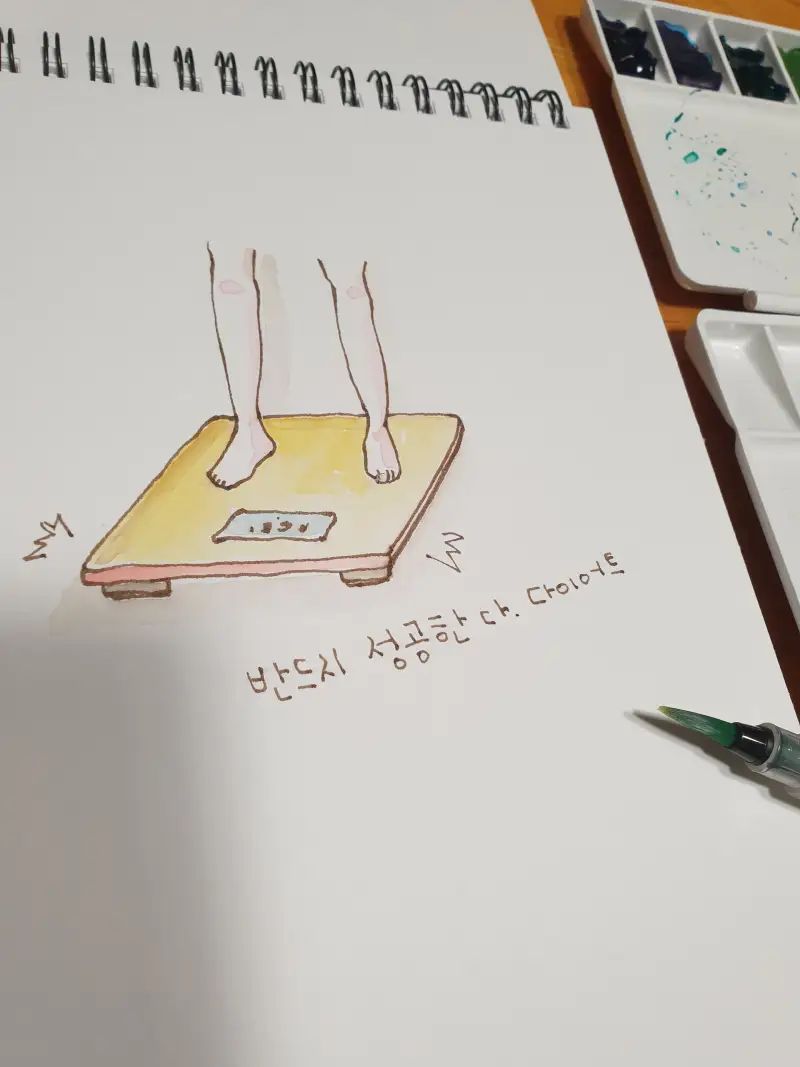 반드시 성공한다. 다이어트